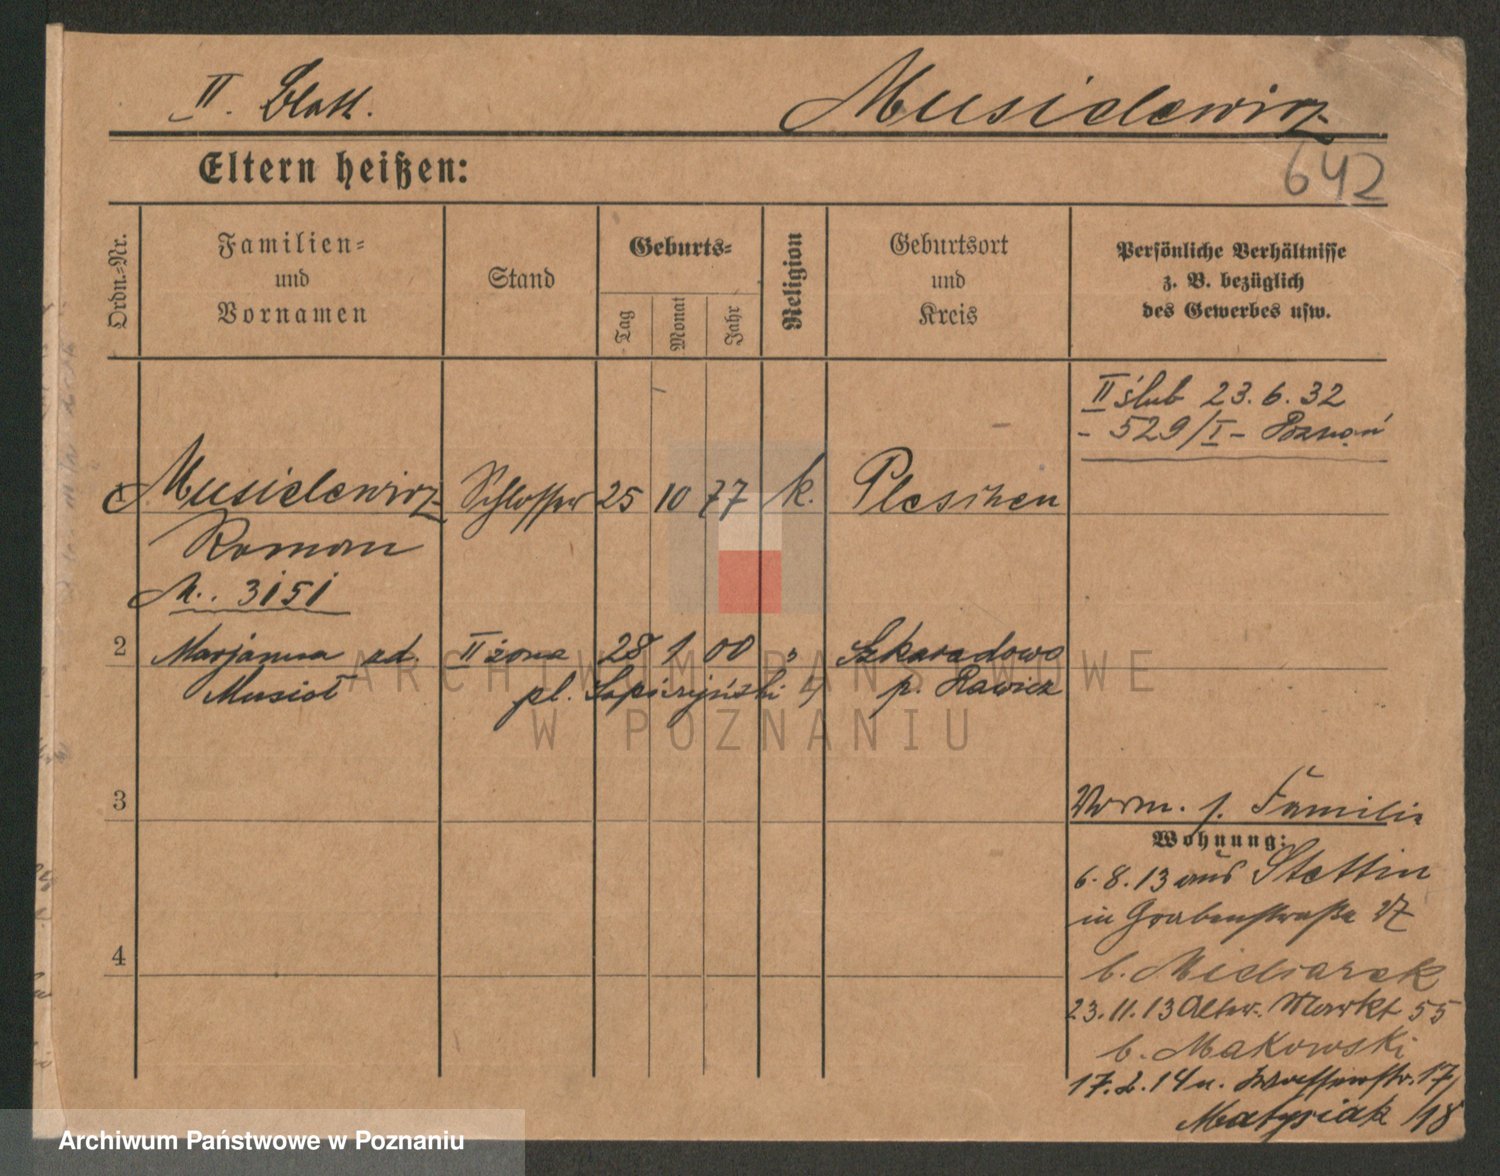 II. Blatt.
Musielewicz
642
Eltern heißen:
Ordn.-Nr.
Familien-
und
Vornamen
Stand
Geburts-
Tag
Monat
Jahr
Religion
Geburtsort
und
Kreis
Persönliche Verhältnisse
z. B. bezüglich
des Gewerbes usw.
II ślub 23.6.32
- 529/I - Poznań
1 Musielewicz Schlosser 25 10 77 k. Pleschen
Roman
3151
2 Marjanna II żona 28 1 00 " Szkaradowo
Musioł pl. Sapieżyński p. Rawicz
3
Vorm. s. Familie
Wohnung:
6.8.13 aus Stettin
in Grabenstraße
4
b.
23.11.13 Alter Markt 55
b. Makowski
17.2.14 17/
Matysiak /18
ARCHIWUM PAŃSTWOWE
W POZNANIU
Archiwum Państwowe w Poznaniu